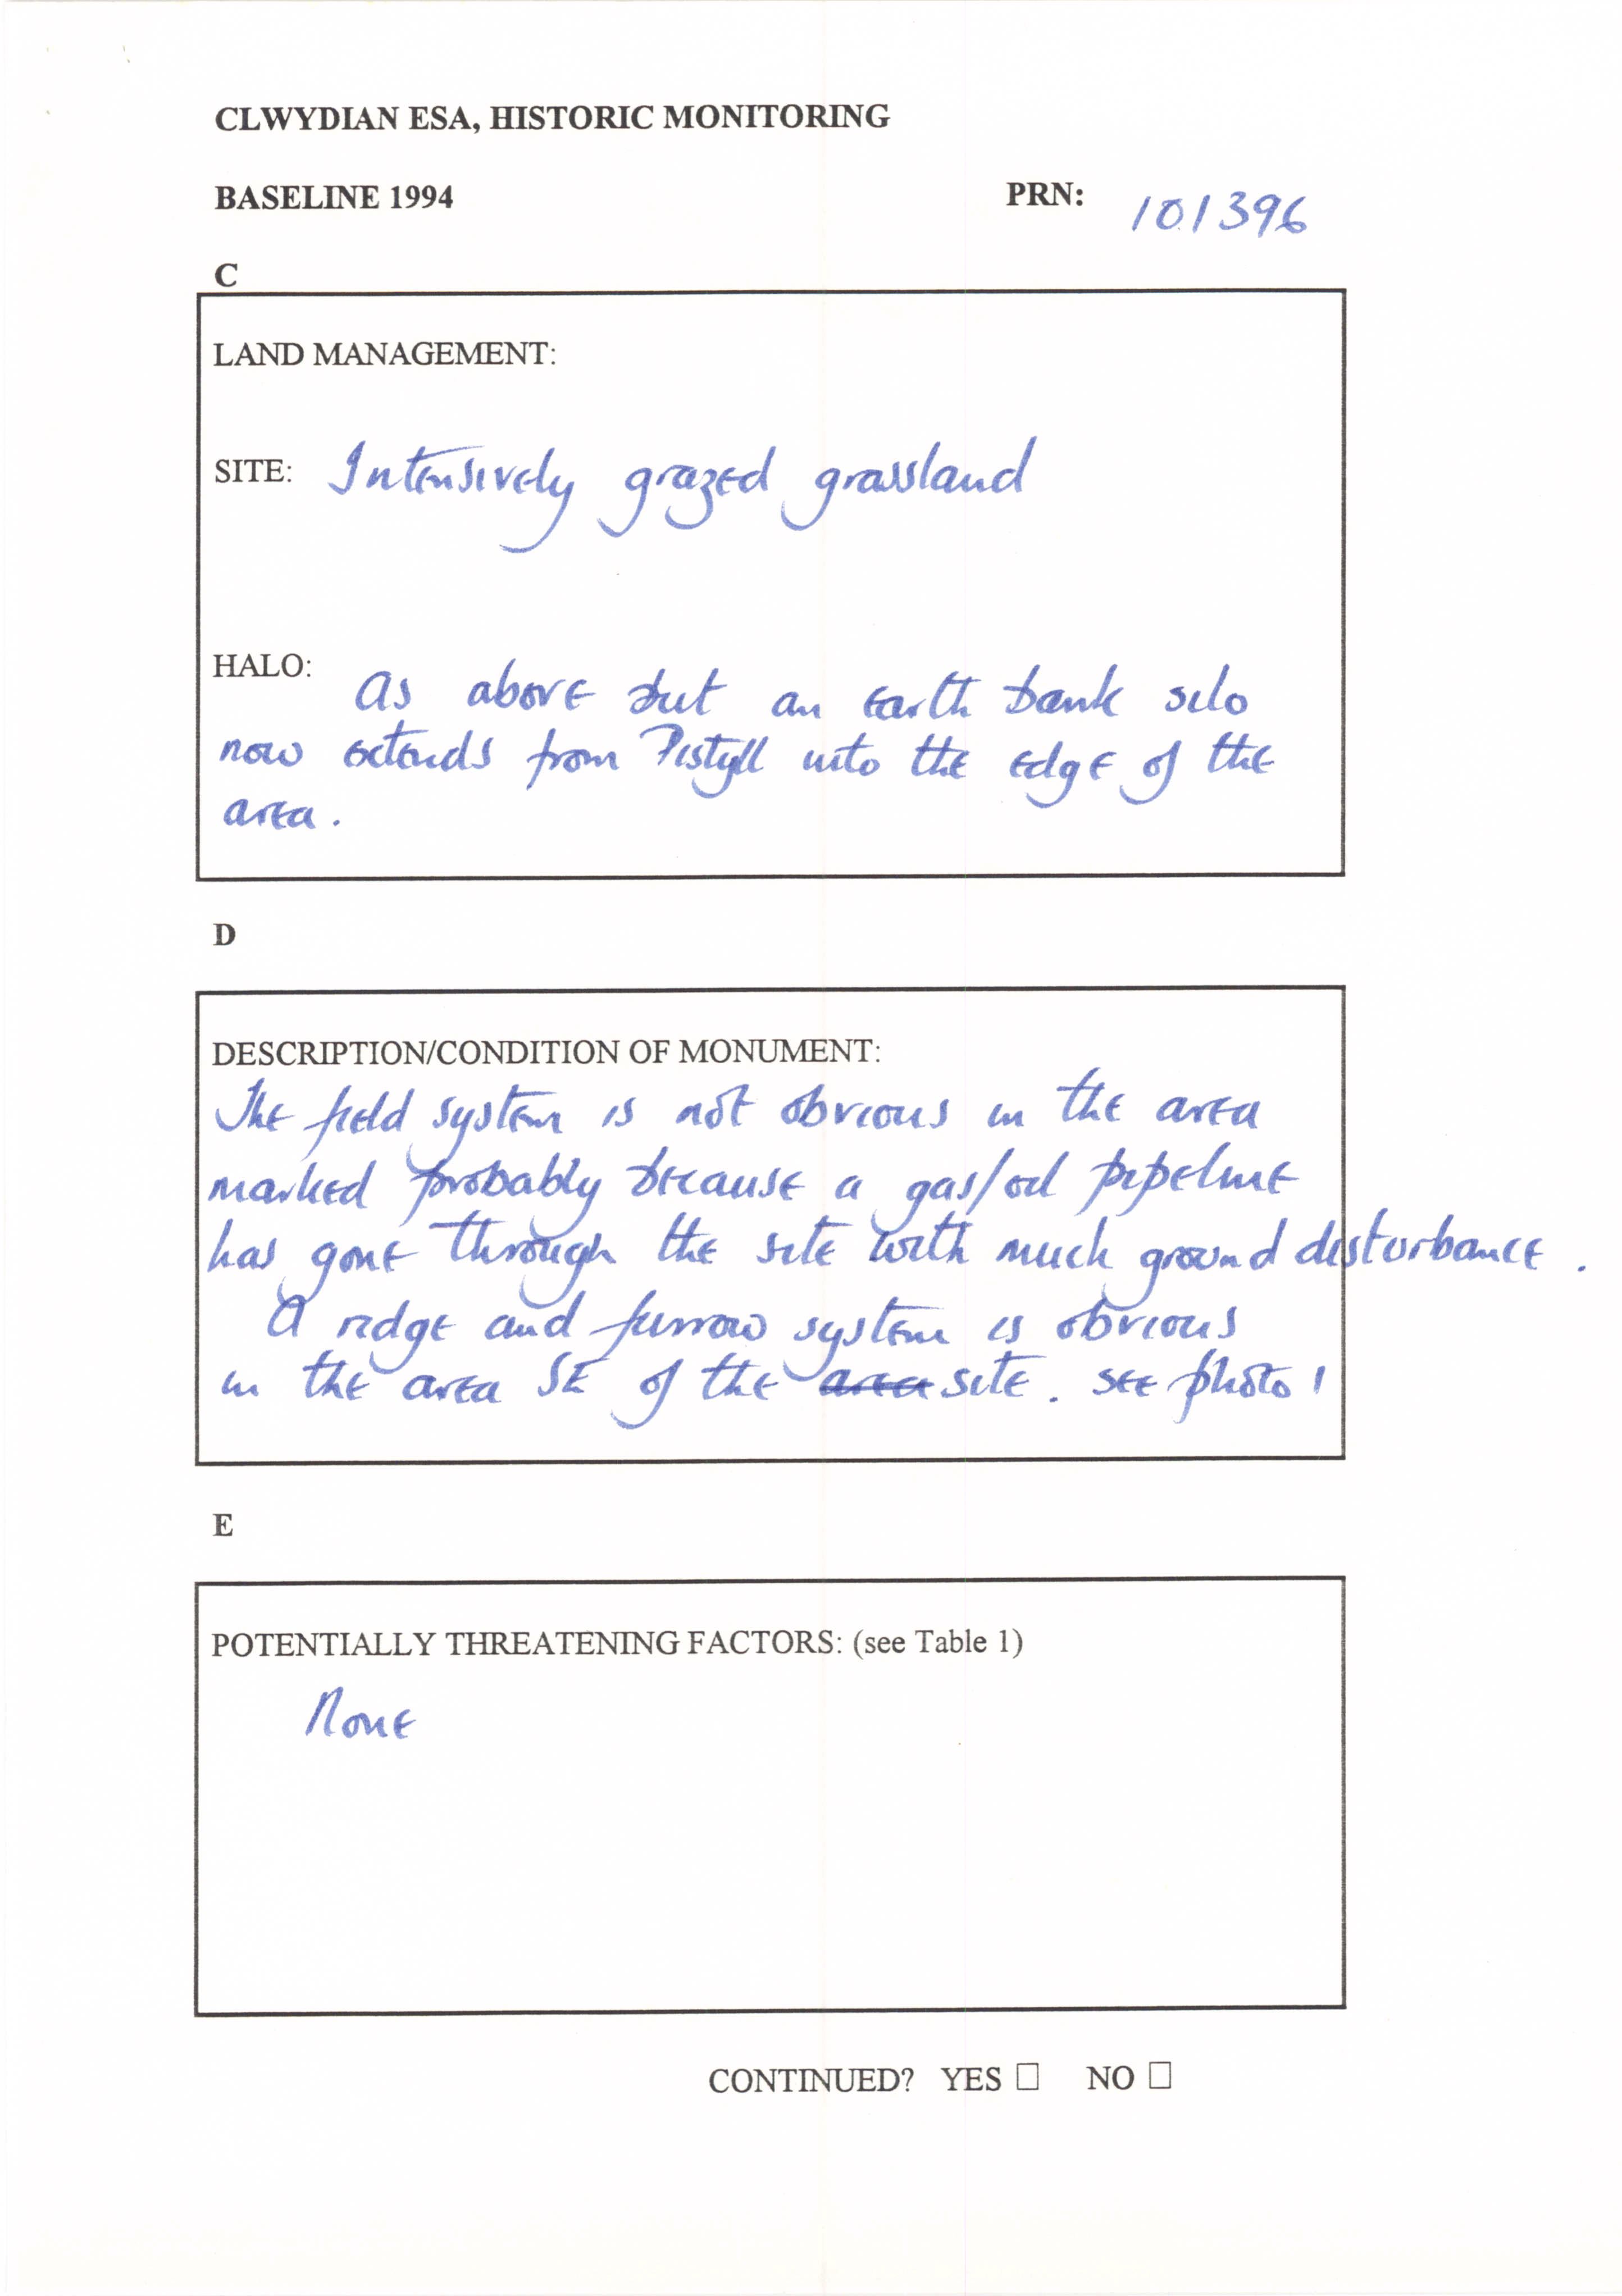 CLWYDIAN ESA, HISTORIC MONITORING
BASELINE 1994 PRN: 101396
C
LAND MANAGEMENT:
SITE: Intensively grazed grassland
HALO: As above but an earth bank silo
now extends from Pistyll into the edge of the
area.
D
DESCRIPTION/CONDITION OF MONUMENT:
The field system is not obvious in the area
marked probably because a gas/oil pipeline
has gone through the site with much ground disturbance.
A ridge and furrow system is obvious
in the area SE of the area site. see photo 1
E
POTENTIALLY THREATENING FACTORS: (see Table 1)
None
CONTINUED? YES ☐ NO ☐